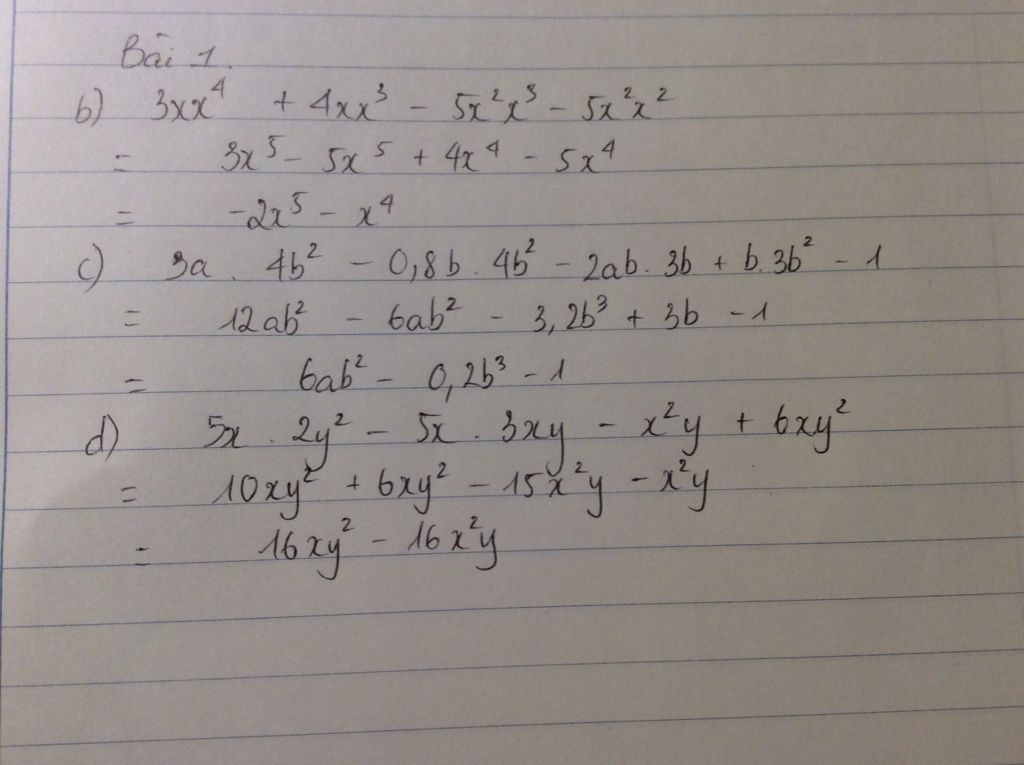 Bài 1.
b) 3xx⁴ + 4xx³ - 5x²x³ - 5x²x²
= 3x⁵ - 5x⁵ + 4x⁴ - 5x⁴
= -2x⁵ - x⁴
c) 3a . 4b² - 0,8b . 4b² - 2ab . 3b + b . 3b² - 1
= 12ab² - 6ab² - 3,2b³ + 3b - 1
= 6ab² - 0,2b³ - 1
d) 5x . 2y² - 5x . 3xy - x²y + 6xy²
= 10xy² + 6xy² - 15x²y - x²y
= 16xy² - 16x²y